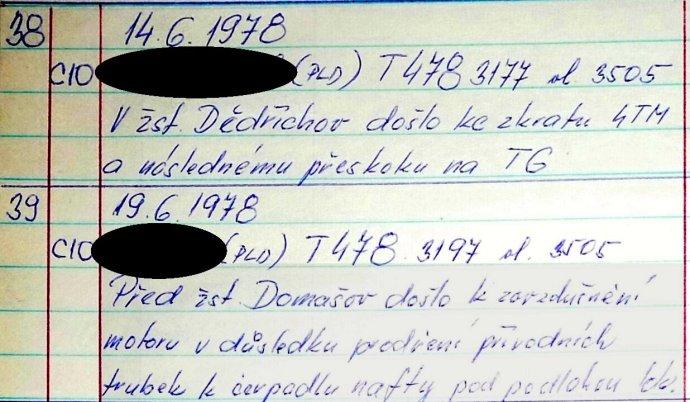 38 14.6.1978
C10 (PLD) T478 3177 vl. 3505
V žst. Dědřichov došlo ke zkratu 4TM
a následnému přeskoku na TG
39 19.6.1978
C10 (PLD) T478 3197 vl. 3505
Před žst. Domašov došlo k zavzdušnění
motoru v důsledku prodření přívodních
trubek k čerpadlu nafty pod podlahou lok.